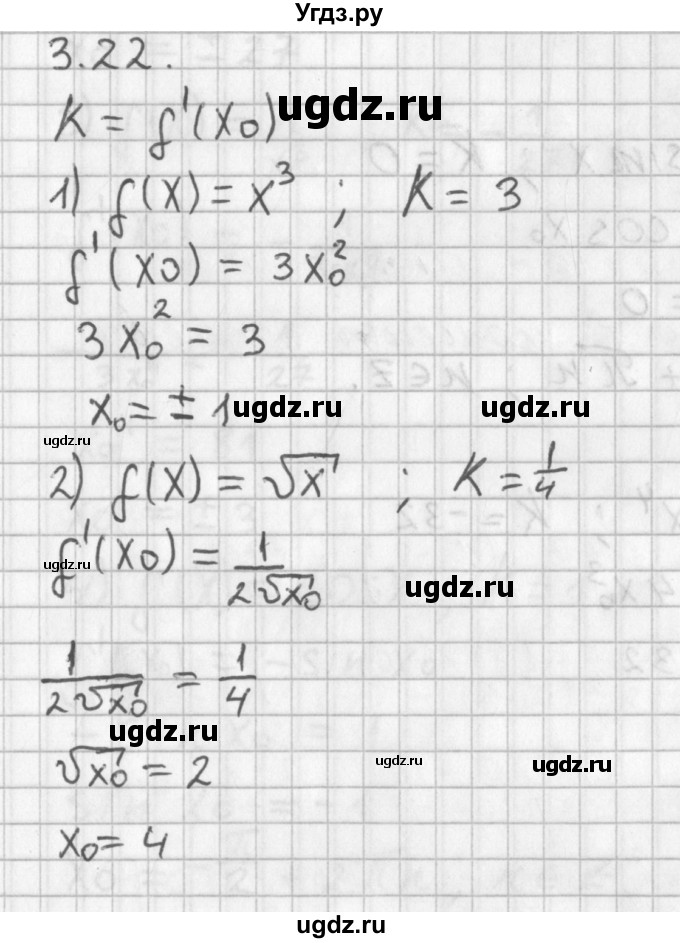 Угдз.ру
3.22.
K = f'(x₀)
ugdz.ru
1) f(x) = x³ ; K = 3
f'(x₀) = 3x₀²
3x₀² = 3
x₀ = ± 1
ugdz.ru ugdz.ru
ugdz.ru
2) f(x) = √x ; K = 1/4
f'(x₀) = 1/(2√x₀)
ugdz.ru
ugdz.ru
1/(2√x₀) = 1/4
ugdz.ru
√x₀ = 2
ugdz.ru ugdz.ru
x₀ = 4
ugdz.ru